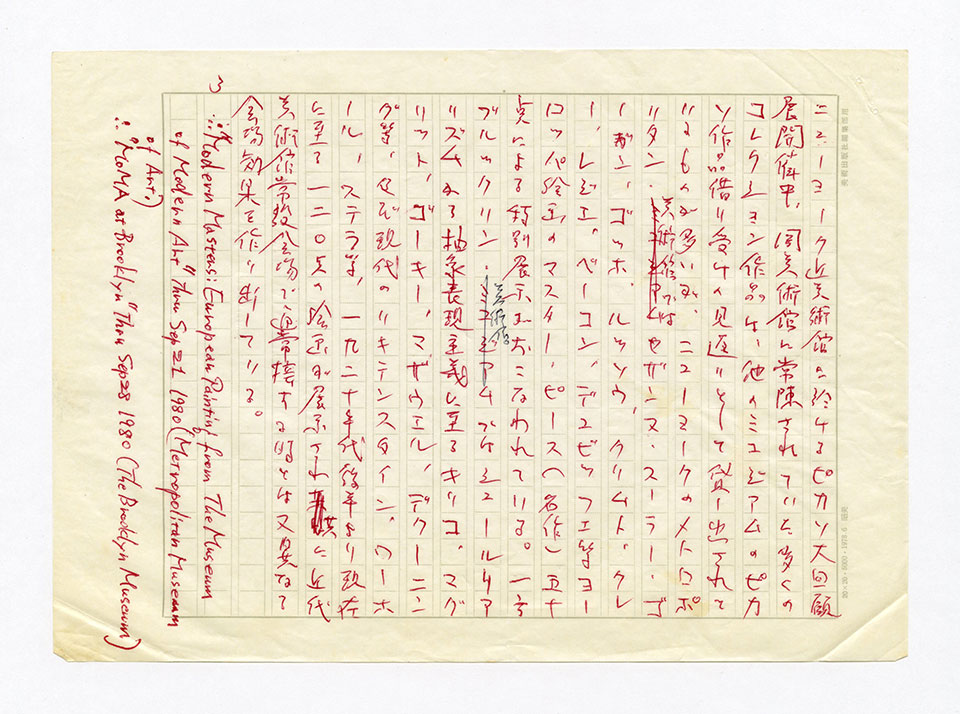 ニューヨーク近美術館に於けるピカソ大回顧
展開催中、同美術館に常陳されていた多くの
コレクション作品は、他のミュジアムのピカ
ソ作品借り受けの見返りとして貸し出されて
いるものが多いが、ニューヨークのメトロポ
リタン・美術館では、セザンヌ・スーラー・ゴ
ーガン、ゴッホ、ルッソウ、クリムト、クレ
ー、レジエ、ベーコン、デュビッフェ等ヨー
ロッパ絵画のマスター・ピース(名作)五十
点による特別展示がおこなわれている。一方
ブルックリン・美術館ではシュールリア
リズムから抽象表現主義に至るキリコ、マグ
リット、ゴーキー、マザウエル、デクーニン
グ等、及び現代のリキテンスタイン、ウーホ
ール、ステラ等、一九二十年代後半より現在
に至る一二〇点の絵画が展示され 供に近代
美術館常設会場で通常接する時とは又異なる
会場効果を作り出している。
3
∴"Modern Masters: European Painting from The Museum
of Modern Art" Thru Sep 21 1980 (Metropolitan Museum
of Art.)
∴"MoMA at Brooklyn" Thru Sep 28 1980 (The Brooklyn Museum)